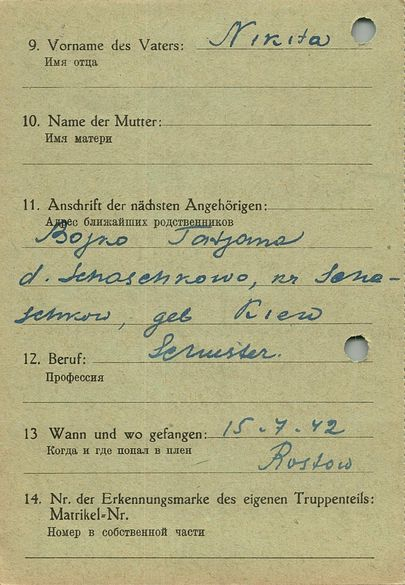 9. Vorname des Vaters: Nikita
Имя отца
10. Name der Mutter:
Имя матери
11. Anschrift der nächsten Angehörigen:
Адрес ближайших родственников
Bojko Tatjana
d. Schaschkowo, kr Scha-
schkow, geb Kiew
12. Beruf: Schuster.
Профессия
13 Wann und wo gefangen: 15.7.42
Когда и где попал в плен
Rostow
14. Nr. der Erkennungsmarke des eigenen Truppenteils:
Matrikel-Nr.
Номер в собственной части